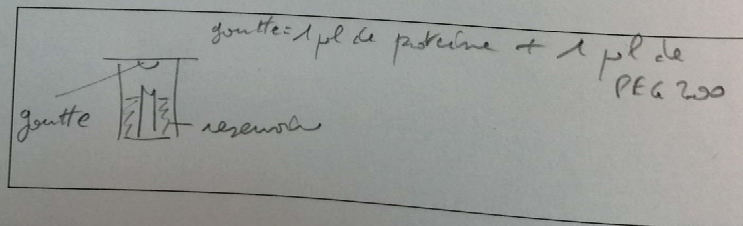 goutte = 1 µl de proteine + 1 µl de
PEG 200
goutte
reservoir